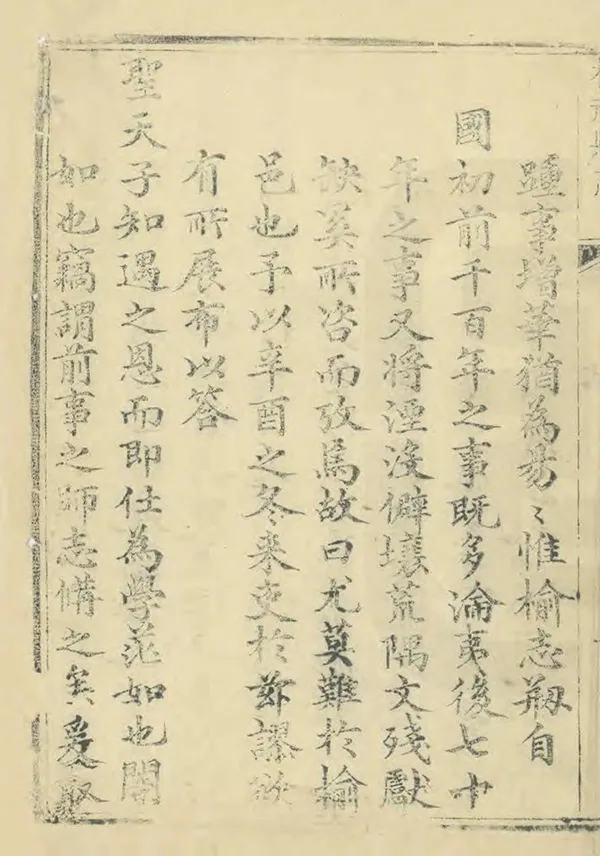 踵事增華猶為易〻惟榆志剏自
國初前千百年之事既多淪夷後七十
年之事又將湮沒僻壤荒隅文殘獻
缺奚所咨而攷焉故曰尤莫難於榆
邑也予以辛酉之冬来吏於玆謬欲
有所展布以答
聖天子知遇之恩而即仕為學茫如也閒
如也竊謂前事之師志備之矣爰取